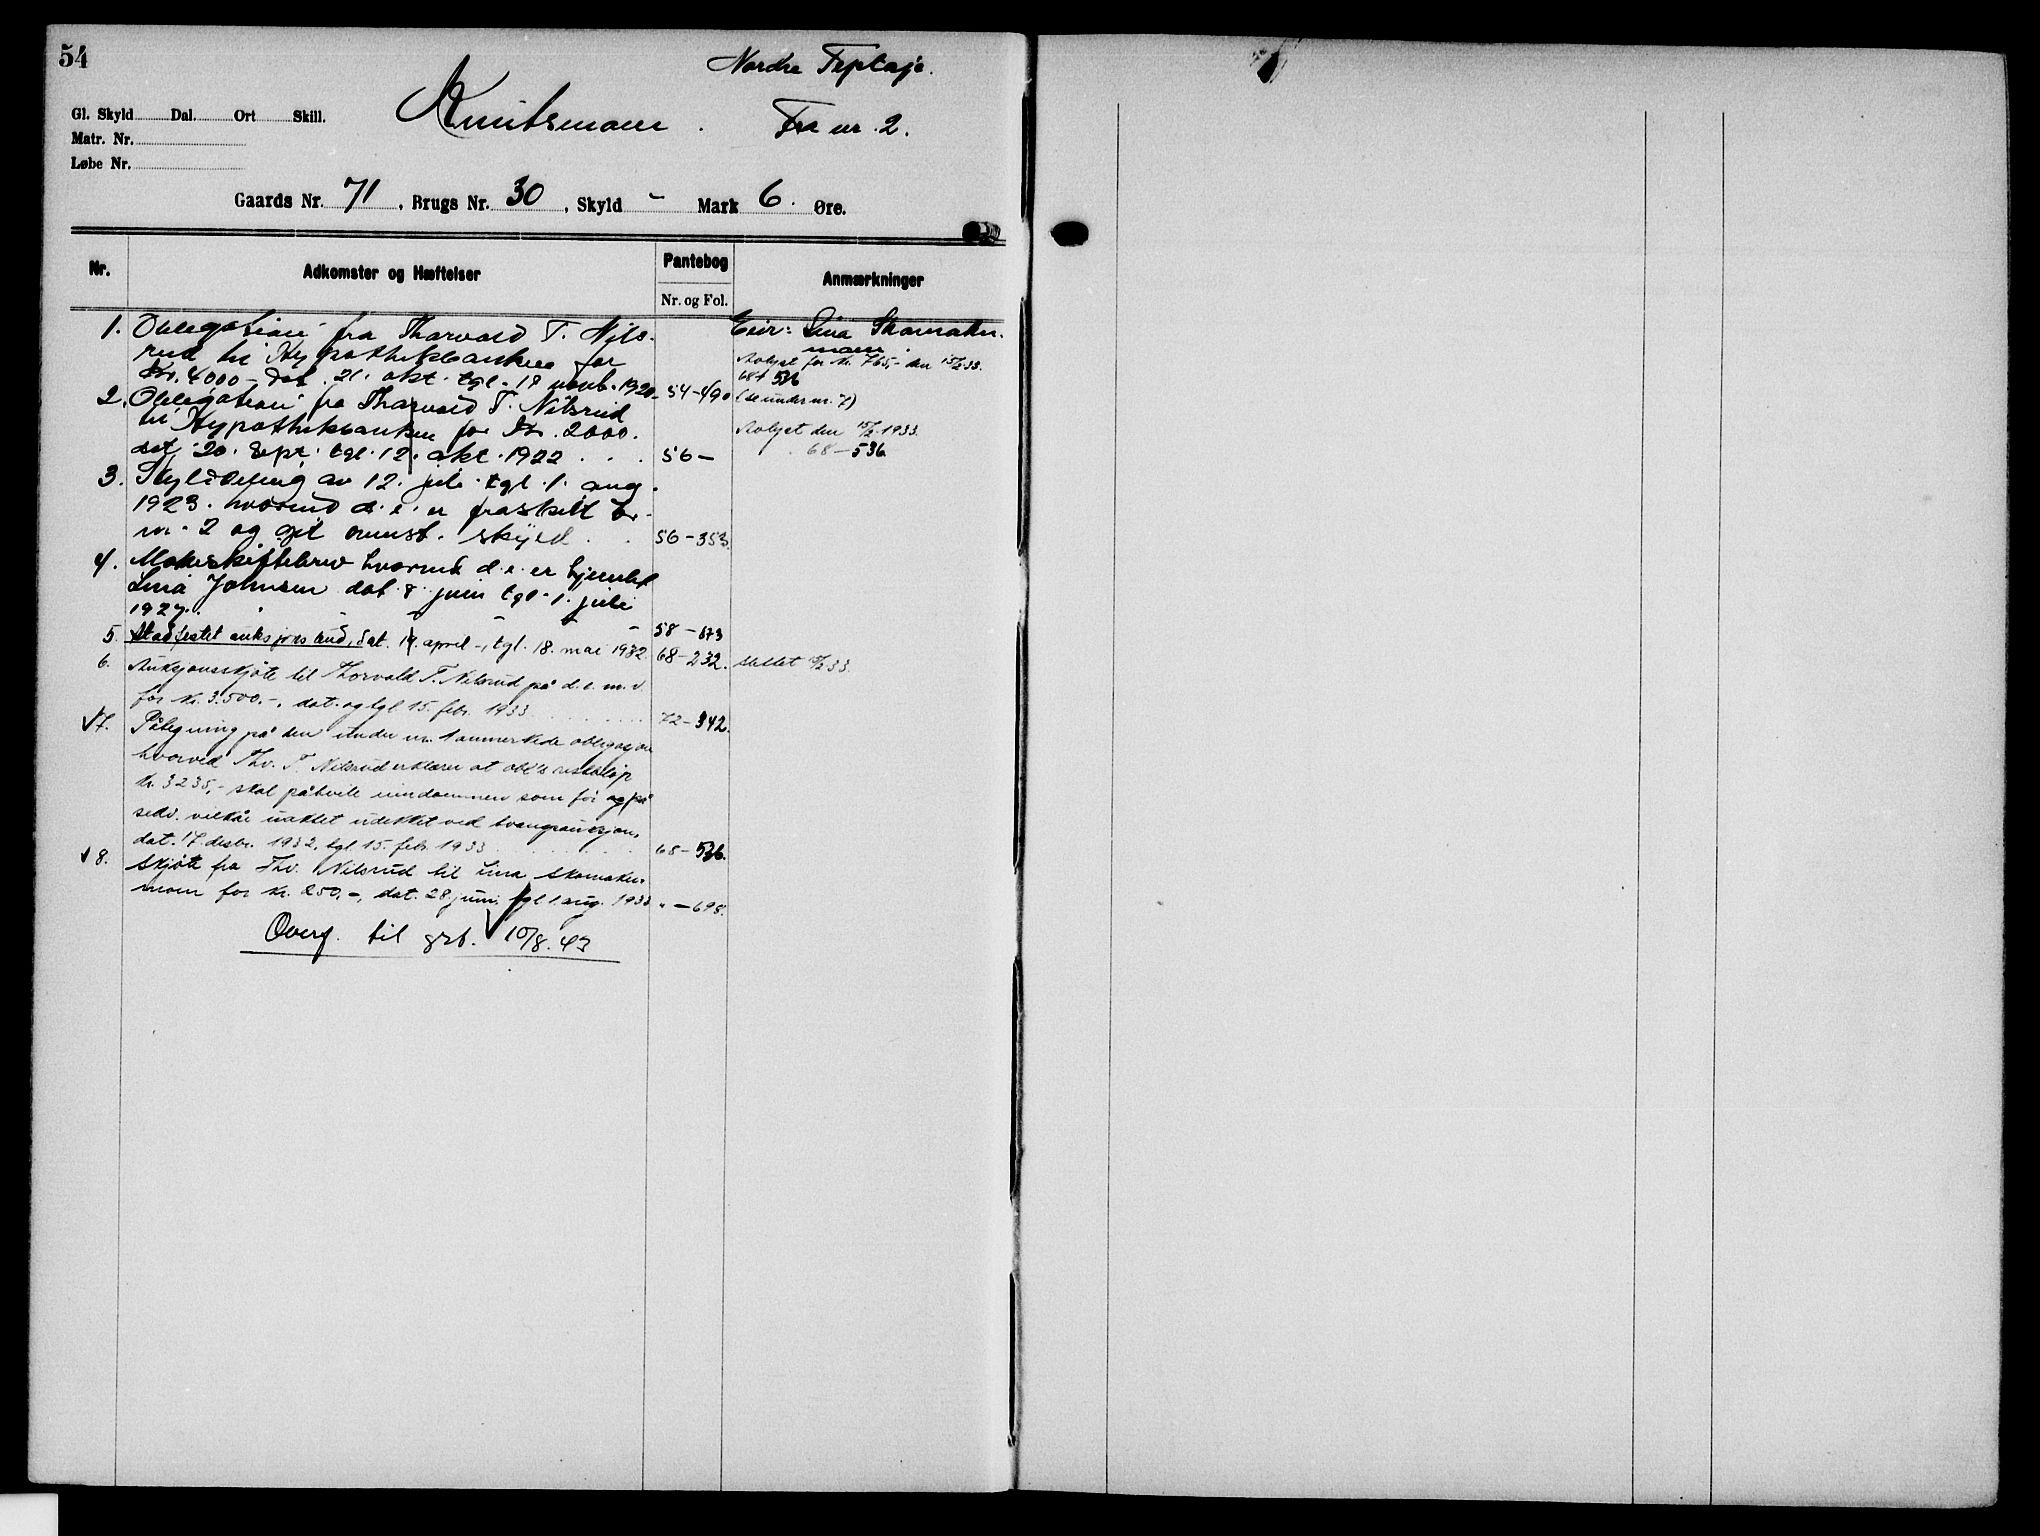 54
Nordre Teptaje.
Gl. Skyld Dal. Ort Skill.
Knutsmoen. Fra nr. 2.
Matr. Nr.
Løbe Nr.
Gaards Nr. 71, Brugs Nr. 30, Skyld - Mark 6. Øre.
Nr. Adkomster og Hæftelser Pantebog Anmærkninger
Nr. og Fol.
1. Obligation fra Thorvald T. Nils- Eier: Lina Skomaker-
rud til Hypothekbanken for moen.
Kr. 4000 - dat. 21. okt. tgl. 18 novb. 1920 54-490
Avlyst for kr. 765,- den 15/2 33.
68 f 536
(se under nr. 7)
2. Obligation fra Thorvald T. Nilsrud
til Hypothekbanken for Kr. 2000.
dat. 20. Sept. tgl. 12. okt. 1922 . . . 56-
Avlyst den 15/2 1933.
68-536
3. Skylddeling av 12. juli tgl. 1. aug.
1923. hvorved d. e. er fraskilt br.
nr. 2 og git ovenst. skyld . . 56-353.
4. Makeskiftebrev hvorved d. e. er hjemlet
Lina Johnsen dat. 8 juni tgl. 1. juli
1927. 58-673
5. Stadfestet auksjonsbud, dat. 19. april -, tgl. 18. mai 1932. 68-232. slettet 15/2 33.
6. Auksjonsskjøte til Thorvald T. Nilsrud på d. e. m. v.
for kr. 3.500.-, dat. og tgl. 15. febr. 1933 . . . . . 72-342.
7. Påtegning på den under nr. 1 anmerkede obligasjon
hvorved Thv. T. Nilsrud erklærer at obl's restbeløp
kr. 3235,- skal påhvile eiendommen som før og på
sedv. vilkår uaktet udekket ved tvangsauksjon,
dat. 17. desbr. 1932, tgl. 15. febr. 1933 . . . . . 68-536.
8. Skjøte fra Thv. Nilsrud til Lina Skomaker-
moen for kr. 250.-, dat. 28. juni, tgl. 1. aug. 1933 " -698.
Overf. til grb. 10/8. 43